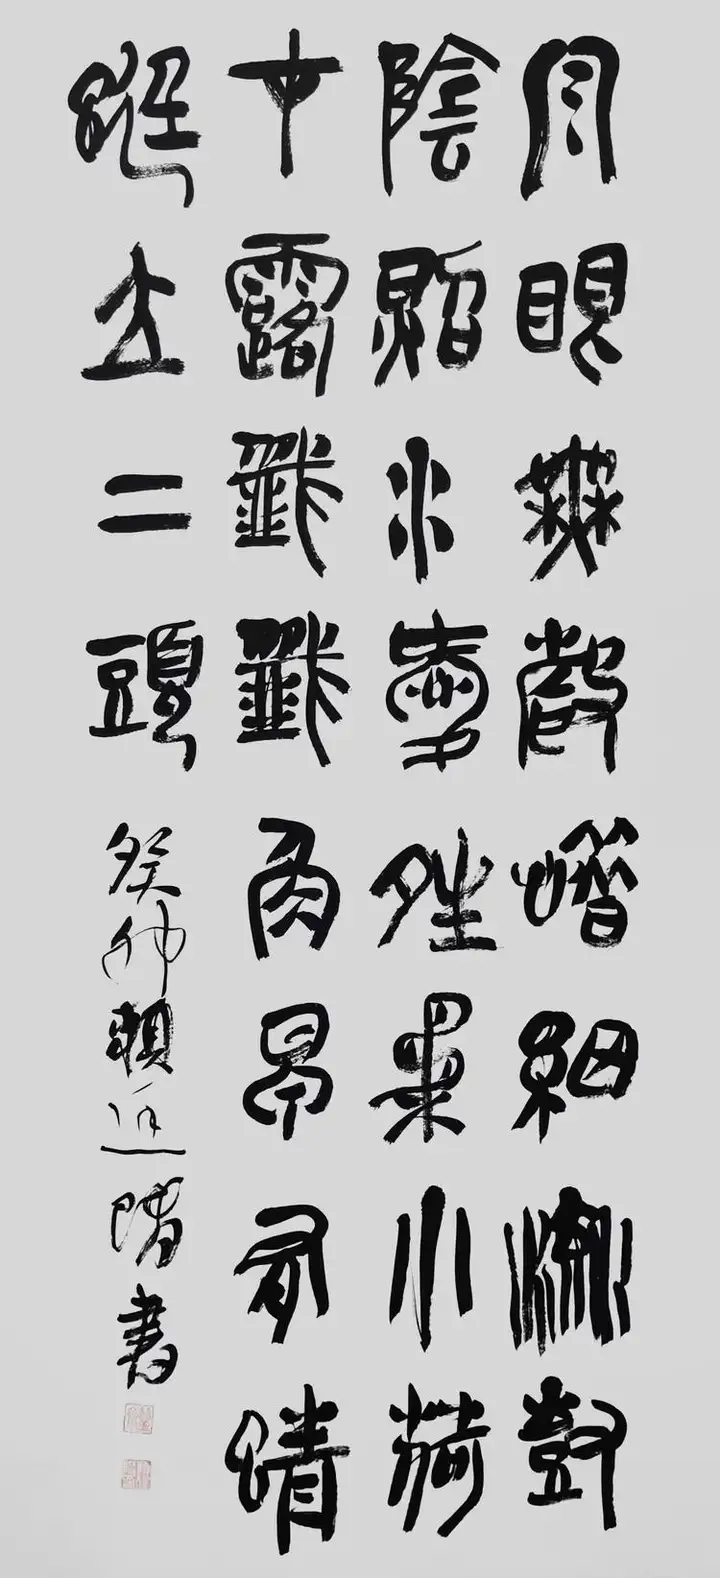 泉眼無聲惜細流樹
陰照水愛晴柔小荷
才露尖尖角早有蜻
蜓立上頭
癸卯 書